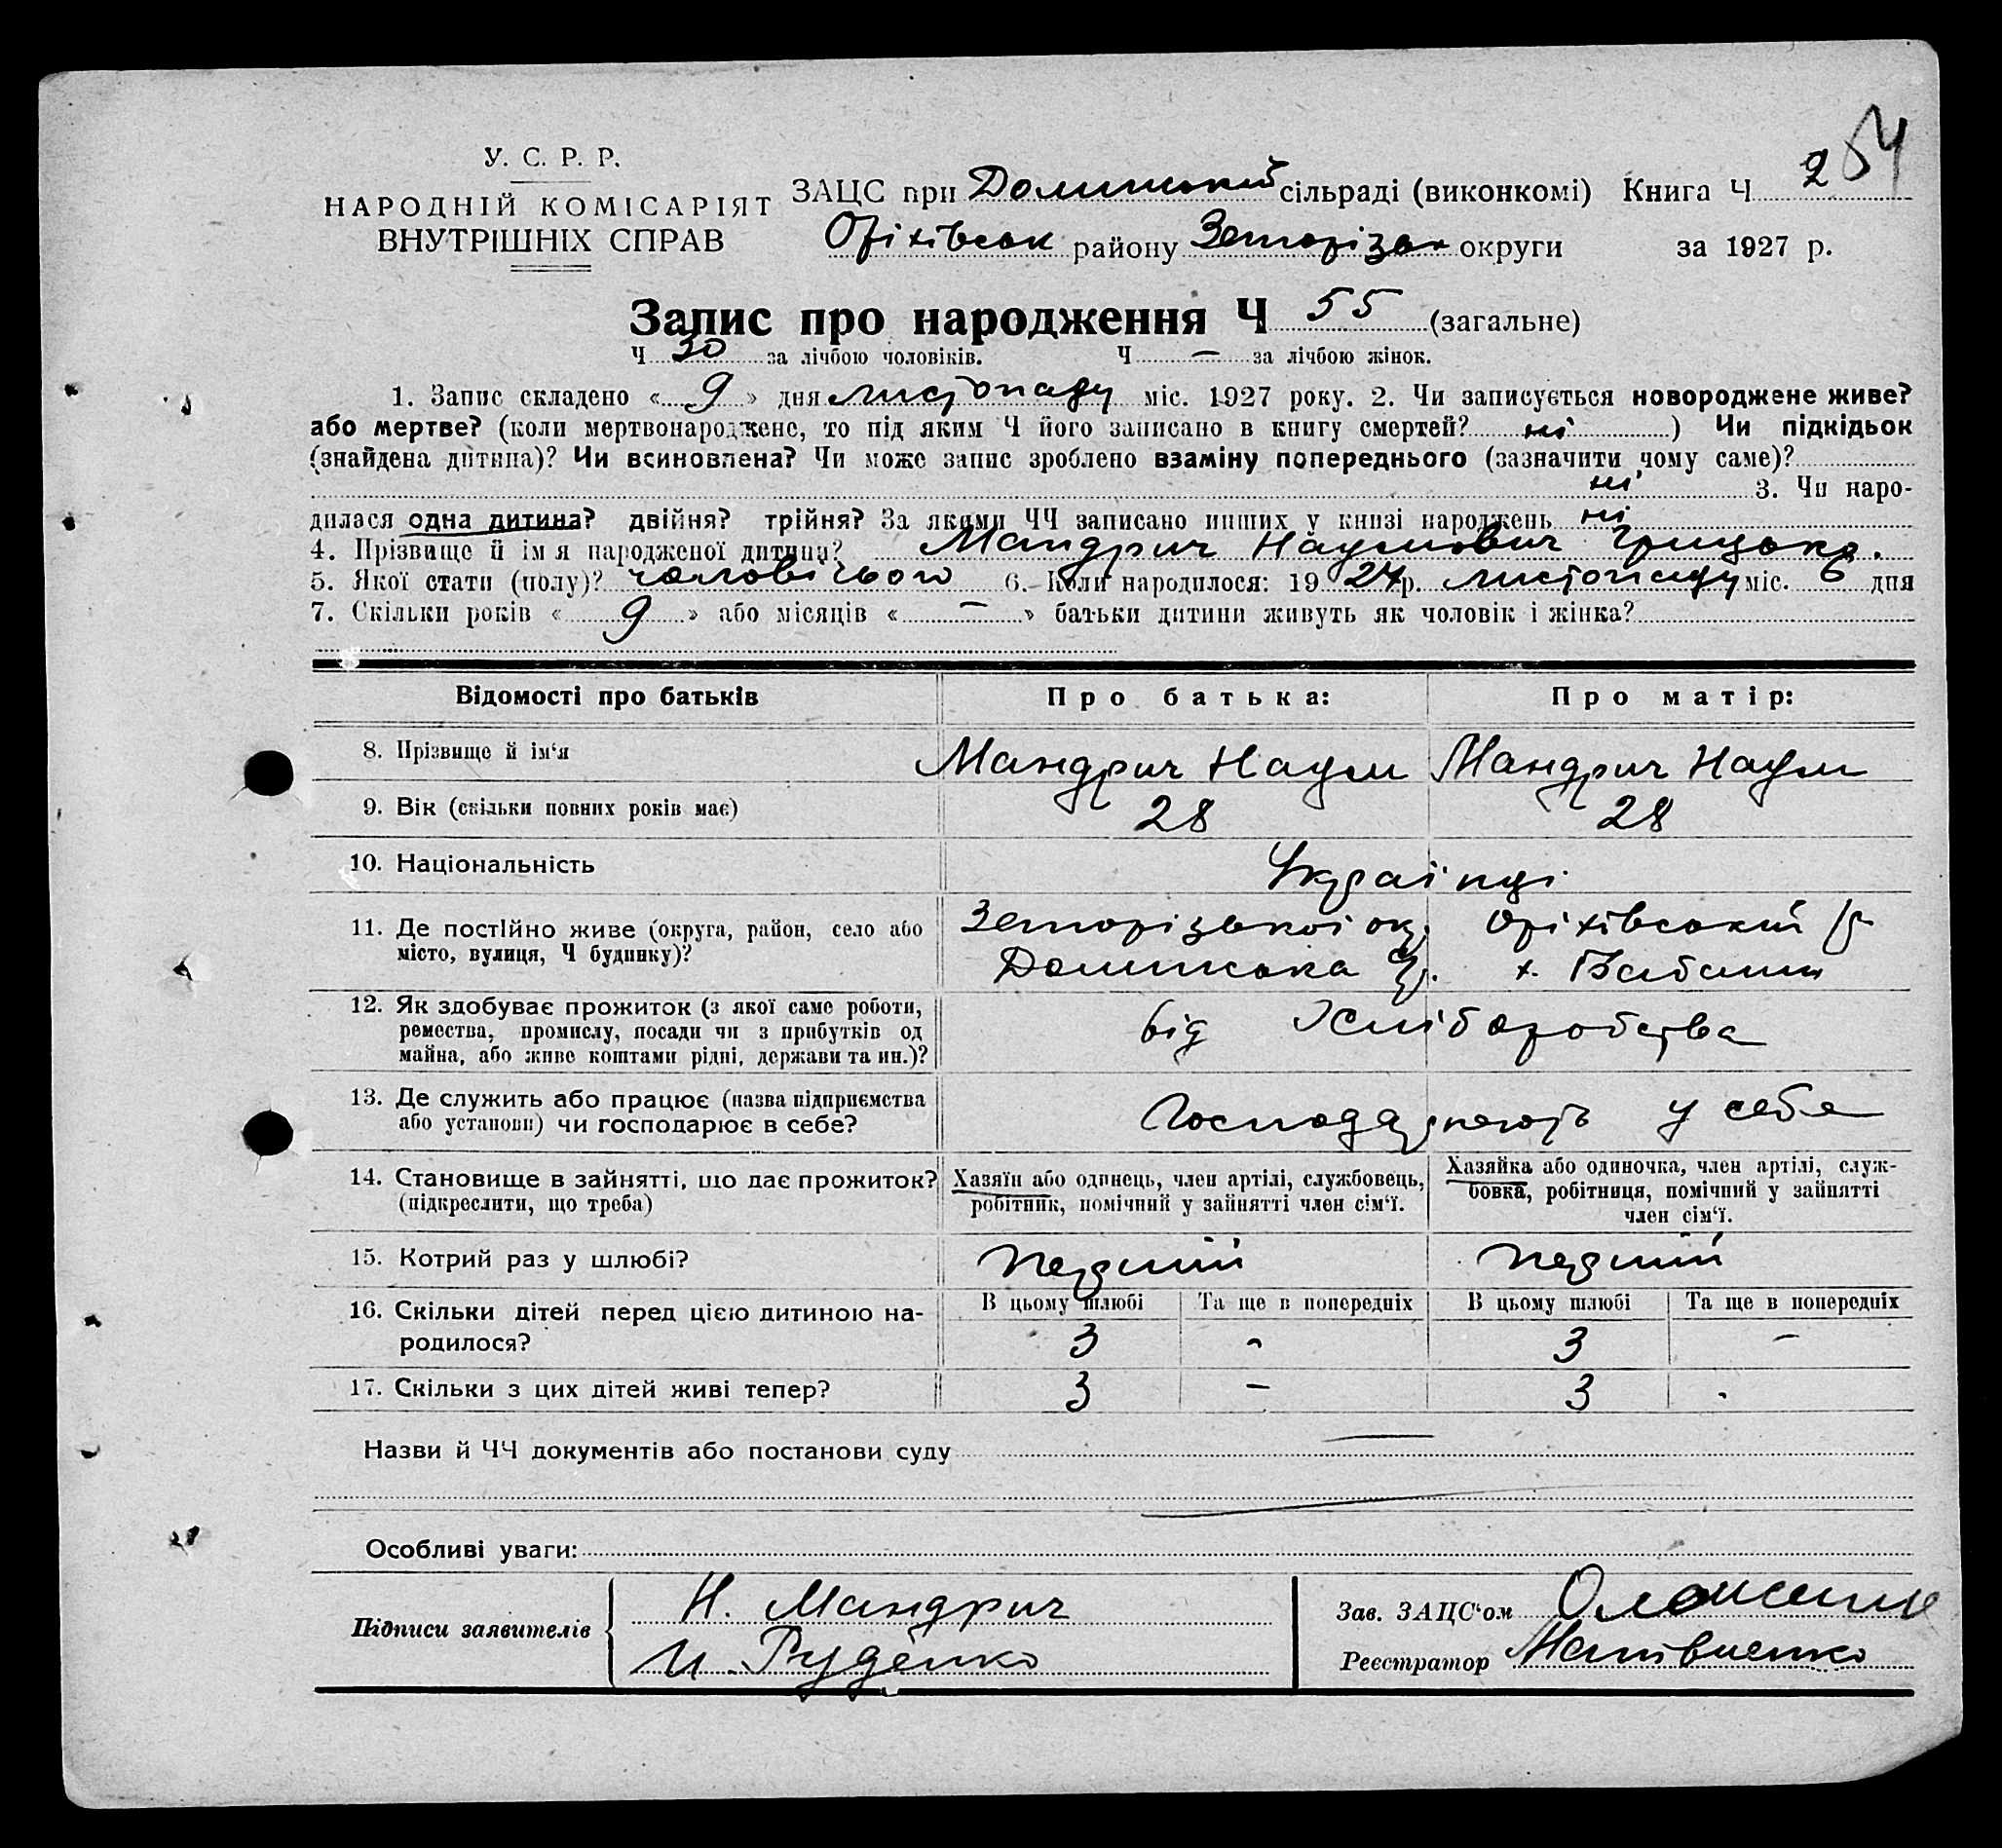 У. С. Р. Р.
НАРОДНІЙ КОМІСАРІЯТ
ВНУТРІШНІХ СПРАВ
ЗАЦС при Долинській сільраді (виконкомі) Книга Ч 2 54
Оріхівськ району Запорізьк округи за 1927 р.
Запис про народження Ч 55 (загальне)
Ч 30 за лічбою чоловіків. Ч — за лічбою жінок.
1. Запис складено « 9 » дня листопаду міс. 1927 року. 2. Чи записується новороджене живе?
або мертве? (коли мертвонароджене, то під яким Ч його записано в книгу смертей? ні ) Чи підкідьок
(знайдена дитина)? Чи всиновлена? Чи може запис зроблено взаміну попереднього (зазначити чому саме)?
ні 3. Чи наро-
дилася одна дитина? двійня? трійня? За якими ЧЧ записано инших у книзі народжень ні
4. Прізвище й ім я народженої дитини? Мандрич Наумович Грицько.
5. Якої стати (полу)? чоловічього 6. Коли народилося: 19 27 р. листопаду міс. 6 дня
7. Скільки років « 9 » або місяців « — » батьки дитини живуть як чоловік і жінка?
Відомості про батьків Про батька: Про матір:
8. Прізвище й ім‘я Мандрич Наум Мандрич Наум
9. Вік (скільки повних років має) 28 28
10. Національність Українці
11. Де постійно живе (округа, район, село або Запорізької ок. Оріхівський р
місто, вулиця, Ч будинку)? Долинська х.
12. Як здобуває прожиток (з якої саме роботи,
ремества, промислу, посади чи з прибутків од від Хліборобства
майна, або живе коштами рідні, держави та ин.)?
13. Де служить або працює (назва підприємства
або установи) чи господарює в себе? Господарюють у себе
14. Становище в зайнятті, що дає прожиток? Хазяїн або одинець, член артілі, службовець, Хазяйка або одиночка, член артілі, служ-
(підкреслити, що треба) робітник, помічний у зайнятті член сім‘ї. бовка, робітниця, помічний у зайнятті
член сім‘ї.
15. Котрий раз у шлюбі? перший перший
16. Скільки дітей перед цією дитиною на- В цьому шлюбі Та ще в попередніх В цьому шлюбі Та ще в попередніх
родилося? 3 - 3 —
17. Скільки з цих дітей живі тепер? 3 — 3 .
Назви й ЧЧ документів або постанови суду —
Особливі уваги:
Підписи заявителів Н. Мандрич Зав. ЗАЦС‘ом
И. Руденко Реєстратор Матвиенко